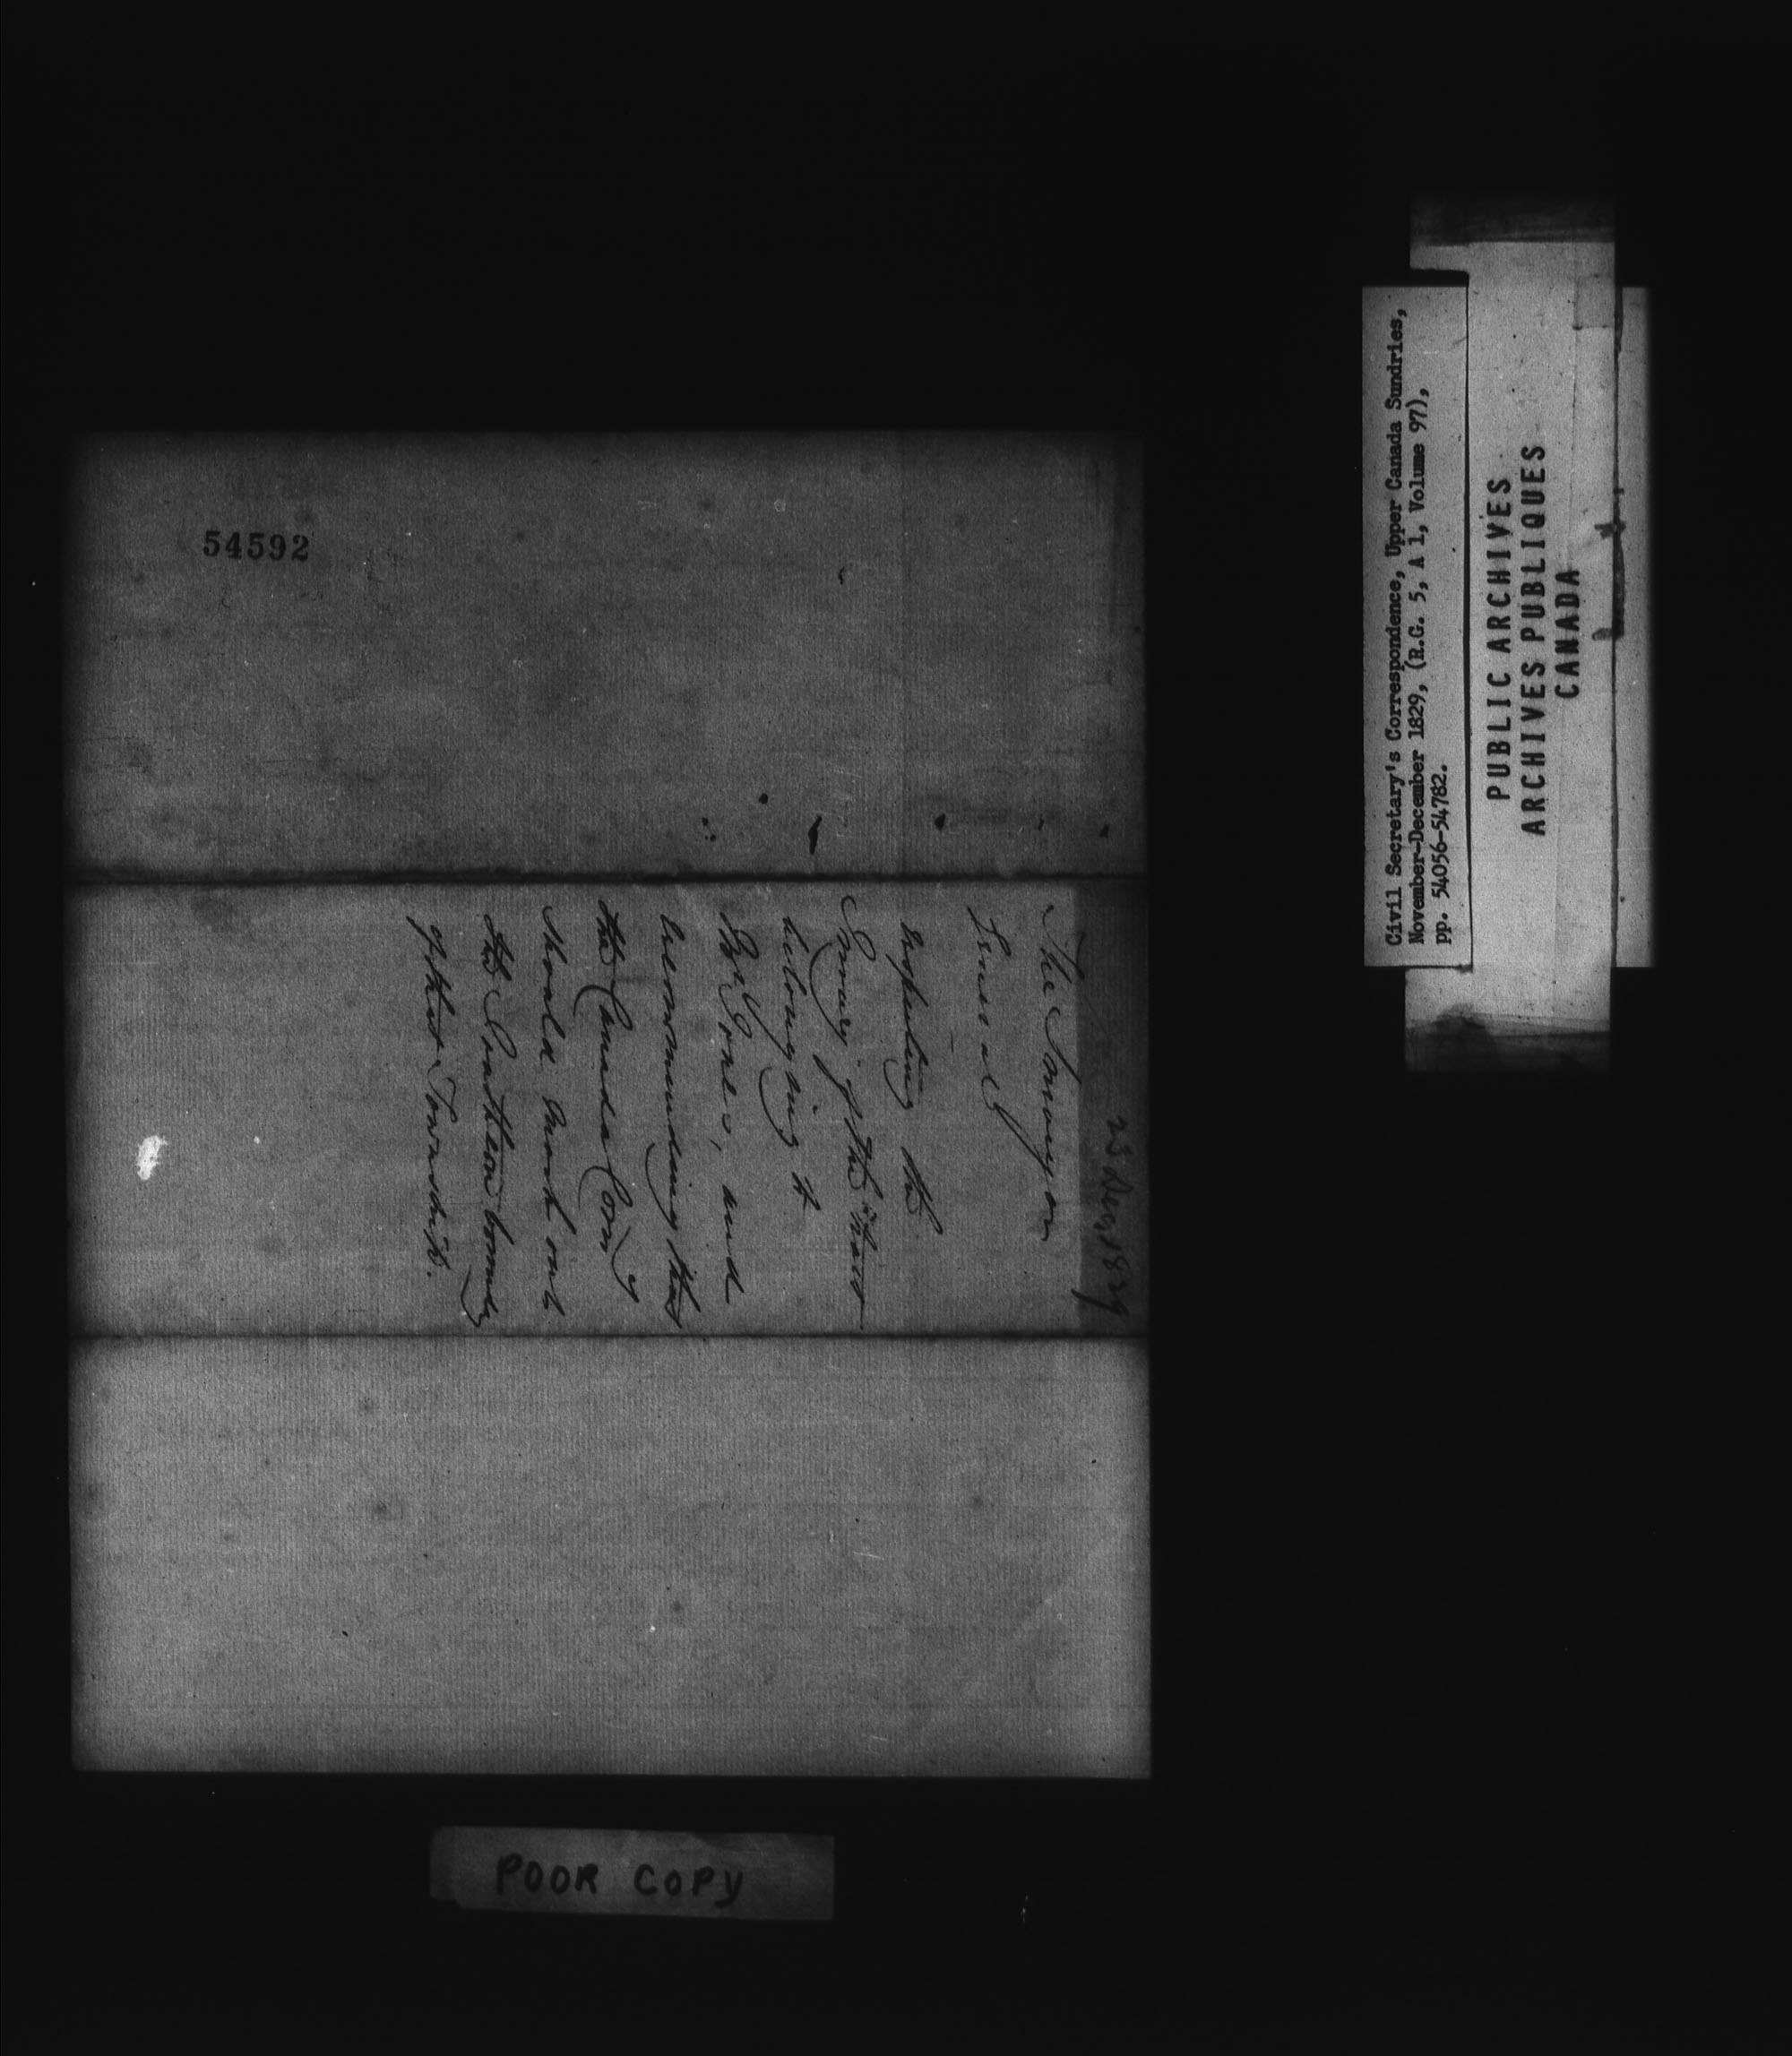 54592
25 Dec, 1829
The Surveyor
General
respecting the
Survey of the tract
belonging to
Jones, and
recommending that
the Canada Comy
should mark out
the Southern boundy
of that Township.
Civil Secretary's Correspondence, Upper Canada Sundries,
November-December 1829, (R.G. 5, A 1, Volume 97),
pp. 54056-54782.
PUBLIC ARCHIVES
ARCHIVES PUBLIQUES
CANADA
POOR COPY